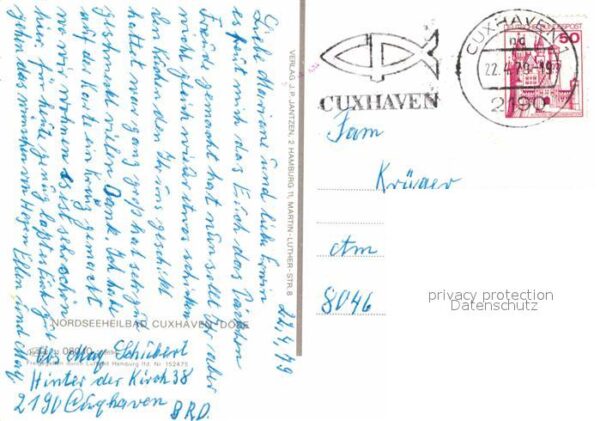 22.4.79
Liebe Mariane und lieb Erwin
es freut mich das Euch das Päckchen
Freude gemacht hat nun sollt Ihr aber
nicht gleich wieder etwas schicken
den Kuchen den Ihr uns geschickt
hattet war ganz groß hat sehr gut
geschmeckt vielen Dank. Ich habe
auf der Karte ein Kreuz gemacht
wo wir wohnen es ist sehr schön
hier. für heute genug laßt es Euch gut
gehn das wünschen von Herzen Ellen und May
VERLAG J. P. JANTZEN, 2 HAMBURG 11, MARTIN-LUTHER-STR. 8
NORDSEEHEILBAD CUXHAVEN-DOSE
May Schubert
Hinter der Kirch 38
2190 Cuxhaven
BRD.
CUXHAVEN
CUXHAVEN 1
22.4.79-19
2190
50
Fam
Krüger
8046
privacy protection
Datenschutz